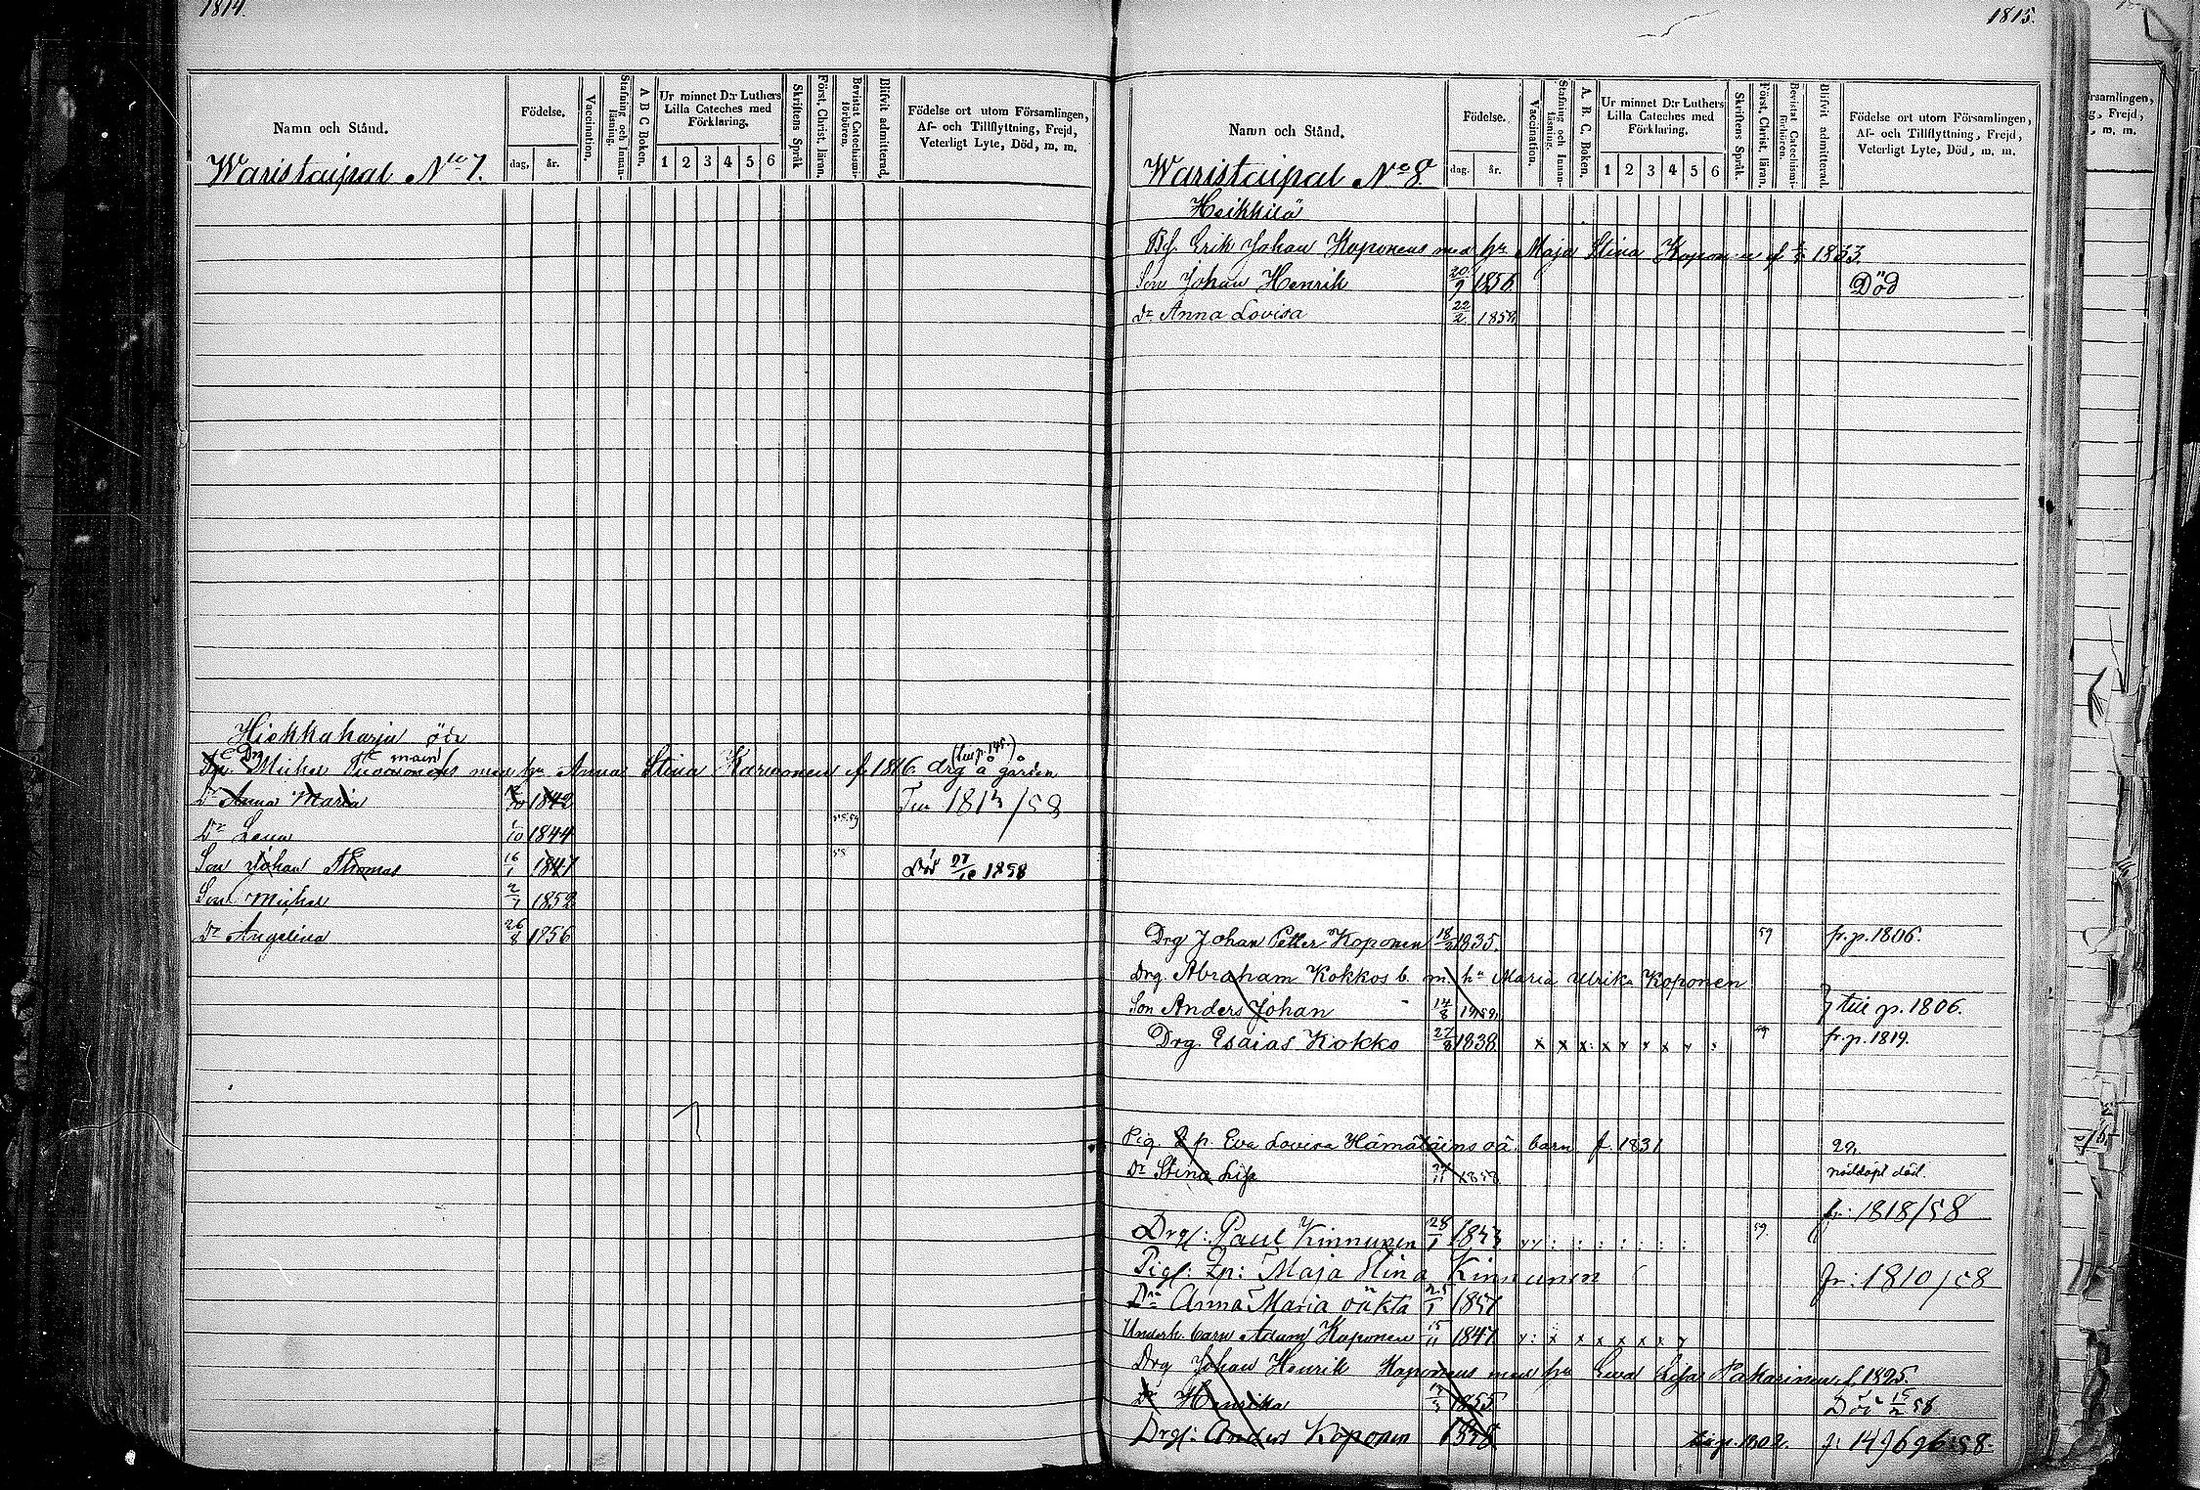 1814.
Namn och Stånd.
Födelse.
dag, år.
Vaccination.
Stafning och Innanläsning.
A B C Boken.
Ur minnet D:r Luthers Lilla Cateches med Förklaring.
1 2 3 4 5 6
Skriftens Språk
Först. Christ. läran.
Bevistat Catechismiförhören.
Blifvit admitterad.
Födelse ort utom Församlingen, Af- och Tillflyttning, Frejd, Veterligt Lyte, Död, m. m.
Waristaipal No 7.
Hiekkaharja öde
Michel med hu Anna Stina Karvonen f 1816. drg å gården
Dr Anna Maria 1842 Till 1813/58
Dr Lena 1/10 1844
Son Johan Thomas 16/1 1847 58 Död 27/10 1858
Son Michel 2/7 1852
Dr Angelina 26/8 1856
1815.
Namn och Stånd.
Födelse.
dag. år.
Vaccination.
Stafning och Innanläsning.
A. B. C. Boken.
Ur minnet D:r Luthers Lilla Cateches med Förklaring.
1 2 3 4 5 6
Skriftens Språk.
Först. Christ. läran.
Bevistat Catechismiförhören.
Blifvit admitterad.
Födelse ort utom Församlingen, Af- och Tillflyttning, Frejd, Veterligt Lyte, Död, m. m.
Waristaipal No 8.
Heikkilä
Erik Johan Koponens med hu Maja Stina Koponen f 1833.
Son Johan Henrik 20/9 1856 Död
Dr Anna Lovisa 22/2 1858
Drg Johan Petter Koponen 18/2 1835. 59 fr. p. 1806.
Drg. Abraham Kokkos b. m. hu Maria Ulrika Koponen
Son Anders Johan 14/8 1858 till p. 1806.
Drg. Esaias Kokko 27/8 1838 x x x x x x x 59 fr. p. 1819.
Pig. Eva Lovisa Hämäläins oä. barn f. 1831
Dr Stina Lisa 1858 nöddopt död.
fr: 1818/58
Drg: Paul Kinnunen 28/1 1833 59.
Pig: Maja Stina Kinnunen fr: 1810/58
Dr Anna Maria oäkta 25/1 1857
Underh. barn Adam Koponen 15/11 1847
Drg Johan Henrik Koponens med hu Eva Lisa Pakarinen f. 1825.
Dr Henrika 1855 Död 15/2 58
Drg: Anders Koponen 1838